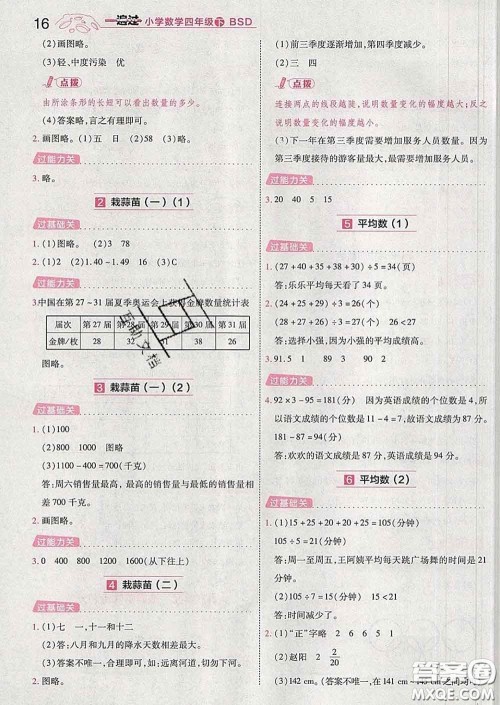 16 一遍过 小学数学四年级 下 BSD
(2)画图略。
(3)轻、中度污染 优
点拨
由所涂条形的长短可以看出数量的多少。
(4)答案略,言之有理即可。
2.画图略。(1)五 日 (2)58 (3)略。
过能力关
3.略。
2 栽蒜苗(一)(1)
过基础关
1.(1)图略。 (2)3 78
2.(1)2 (2)1.40 1.49 (3)图略。
过能力关
3.中国在第27~31届夏季奥运会上获得金牌数量统计表
届次 第27届 第28届 第29届 第30届 第31届
金牌/枚 28 32 38 26
图略。
3 栽蒜苗(一)(2)
过基础关
1.(1)100
(2)800 1000 图略。
(3)1100-400=700(千克)
答:周六销售量最高,周一销售量最低,销售量相差700千克。
2.画图略。
过能力关
3.0 400 800 1200 1600(从下往上)
4 栽蒜苗(二)
过基础关
1.(1)七 一,十一和十二
(2)答:八月和九月的降水天数相差最大。
(3)答案不唯一,合理即可,如:远离河道,切勿下河玩水。
2.图略。
(1)
(2)前三季度逐渐增加,第四季度减少。
点拨
连接两点的线段越陡,说明数量变化的幅度越大;反之说明数量变化的幅度越小。
(3)下一年在第三季度增加服务人员数量。因为第三季度接待的游客量最大,最需要增加服务人员。
过能力关
3.20 40 5 15
5 平均数(1)
过基础关
1.(27+40+35+34+34)÷5=34(页)
答:乐乐平均每天看了34页。
2.(1)(28+32+27+21)÷4=27(个)
(2)30
(3)30>27>26
答:选择小强。因为小强的平均成绩最高。
3.91.5 1 89
过能力关
4.92×3-95=181(分) 因为英语成绩的个位数是4,所以语文成绩的个位数是11-4=7,故语文成绩为87分。 181-87=94(分)
答:欢欢的语文成绩是87分,英语成绩是94分。
6 平均数(2)
过基础关
1.(1)15+25+20+25+20=105(分钟)
105÷5=21(分钟)
答:周一至周五,王阿姨平均每天跳广场舞的时间是21分钟。
(2)105÷7=15(分钟)
答:时间减少了。
2.(1)"正"字略 2 6 6 5 1
(2)赵阳 2 2/20
(3)142 cm。(答案不唯一,在141 cm~145 cm
答案圈
MXQE.COM